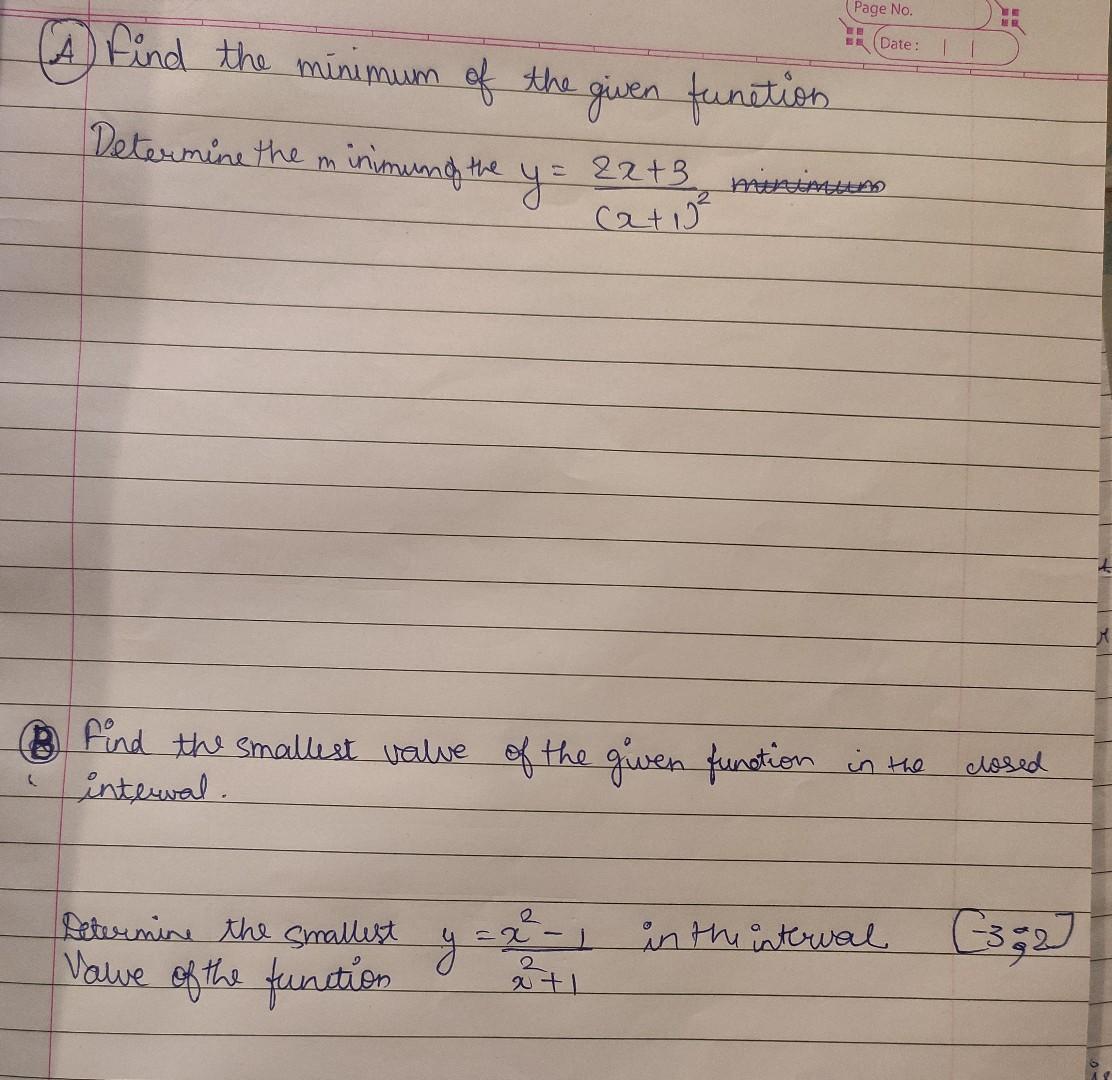 Page No.
Date: | |
(A) Find the minimum of the given function
Determine the minimum of the y = 2x+3 / (x+1)² ~~minimum~~
(B) Find the smallest value of the given function in the closed
interval.
Determine the smallest y = x²-1 / x²+1 in the interval [-3;2]
Value of the function